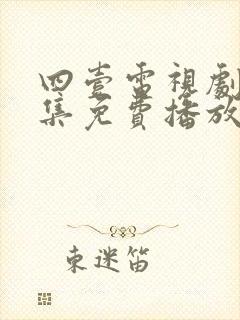 四壹雷視劇
集免費播放
東迷笛